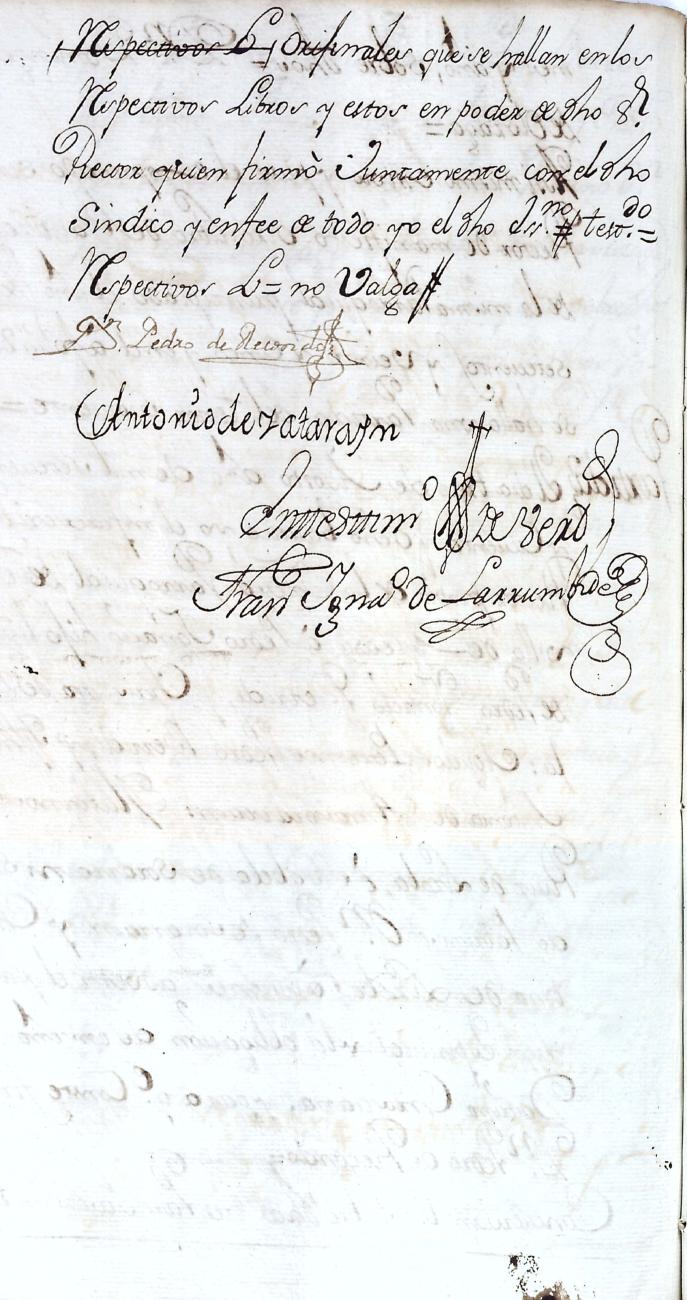 Respectivos L Orijinales que se hallan en los
Respectivos Libros y estos en poder de dho Sr.
Rector quien firmò Juntamente con el dho
Sindico y enfee de todo yo el dho ess.no # test.do =
Respectivos L = no Valga #
Dn. Pedro de Recondo
Antonio de zatarayn
En testimo de Verd
Fran Igna.o de Larrumbide